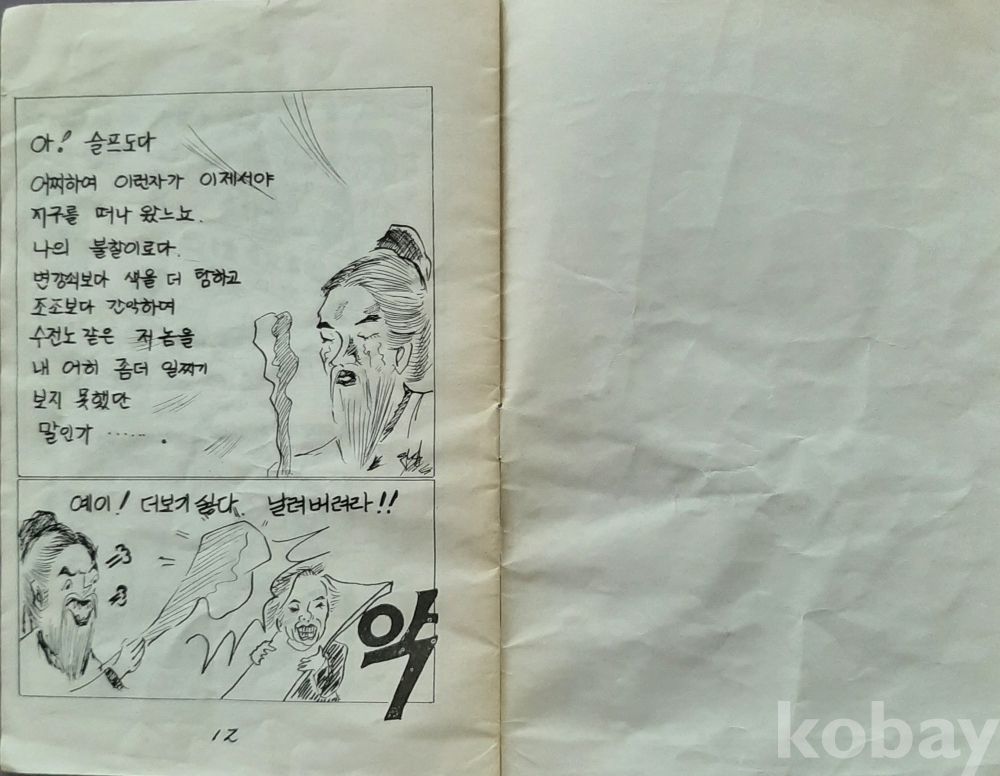 아! 슬프도다
어찌하여 이런자가 이제서야
지구를 떠나 왔느뇨.
나의 불찰이로다.
변강쇠보다 색을 더 탐하고
조조보다 간악하며
수전노 같은 저 놈을
내 어히 좀더 일찌기
보지 못했단
말인가 ...... .
예이! 더보기 싫다. 날려버려라!!
악
12
kobay